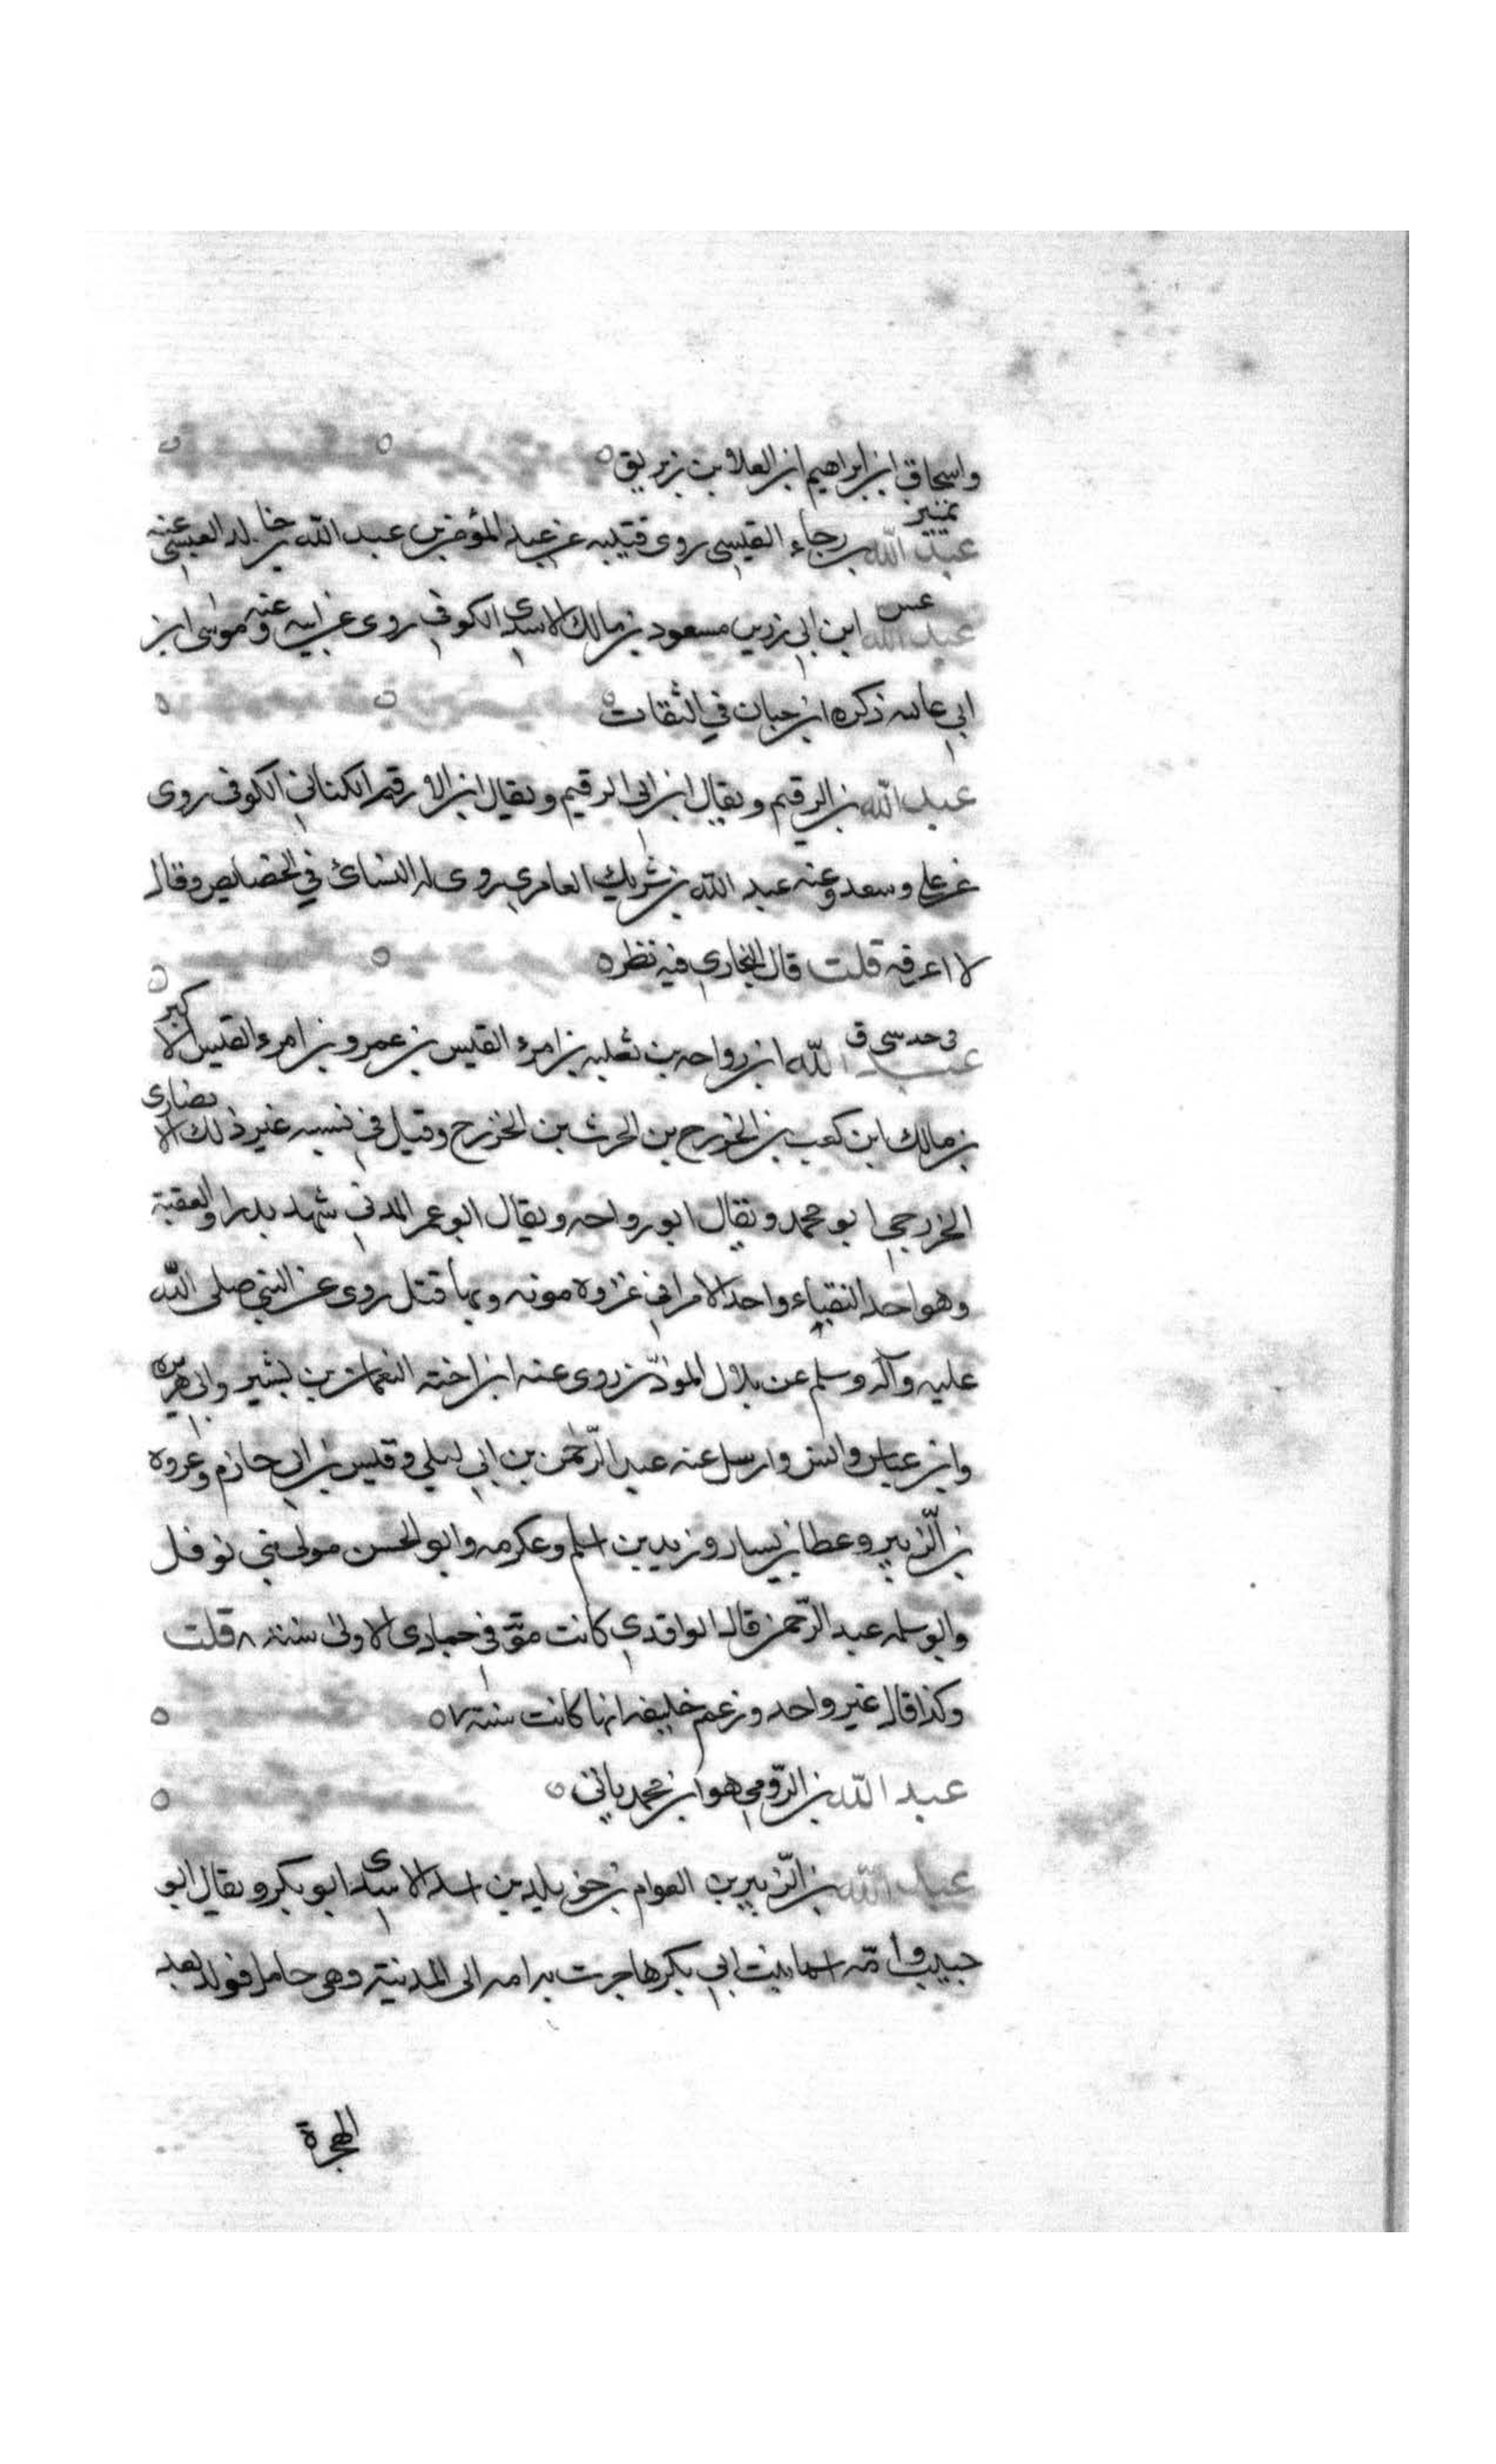 واسحاق ابن ابراهيم ابن العلا بن زبريق
تمييز
عبد الله بن رجاء القيسى روى قتيبه عن عبد المؤمن بن عبد الله بن خالد العبسى عنه
عس
عبد الله ابن ابى رزين مسعود بن مالك الاسدى الكوفى روى عن ابيه وعنه موسى ابن
ابى عايشه ذكره ابن حبان في الثقات
عبد الله بن الرقيم ويقال ابن ابى الرقيم ويقال ابن الارقم الكنانى الكوفى روى
عن على وسعد وعنه عبد الله بن شريك العامرى روى له النسائ في الخصايص وقال
لا اعرفه قلت قال البخارى فيه نظر
عبد الله ابن رواحه بن ثعلبه بن امرء القيس بن عمرو بن امرء القيس الاكبر
بن مالك ابن كعب بن الخزرج بن الحرث بن الخزرج وقيل في نسبه غير ذلك الانصارى
الخزرجى ابو محمد ويقال ابو رواحه ويقال ابو عمر المدنى شهد بدرا والعقبة
وهو احد النقباء واحد الامرا في غزوه موته وبها قتل روى عن النبى صلى الله
عليه وآله وسلم عن بلال الموذّن روى عنه ابن اخته النعمان بن بشير وابى هريره
وابن عباس وانس وارسل عنه عبد الرّحمن بن ابى ليلى وقيس بن ابى حازم وعروه
بن الزّبير وعطا بن يسار وزيد بن اسلم وعكرمه وابو الحسن مولى بنى نوفل
وابو سلمه عبد الرّحمن قال الواقدى كانت موته في جمادى الاولى سنة ٨ قلت
وكذا قال غير واحد وزعم خليفه انها كانت سنة ٧
عبد الله بن الرّومى هو ابن محمد ياتى
عبد الله بن الزّبير بن العوام بن خويلد بن اسد الاسدى ابو بكر ويقال ابو
حبيب وأمّه اسما بنت ابى بكر هاجرت به امه الى المدينة وهى حامل فولد بعد
الهجرة